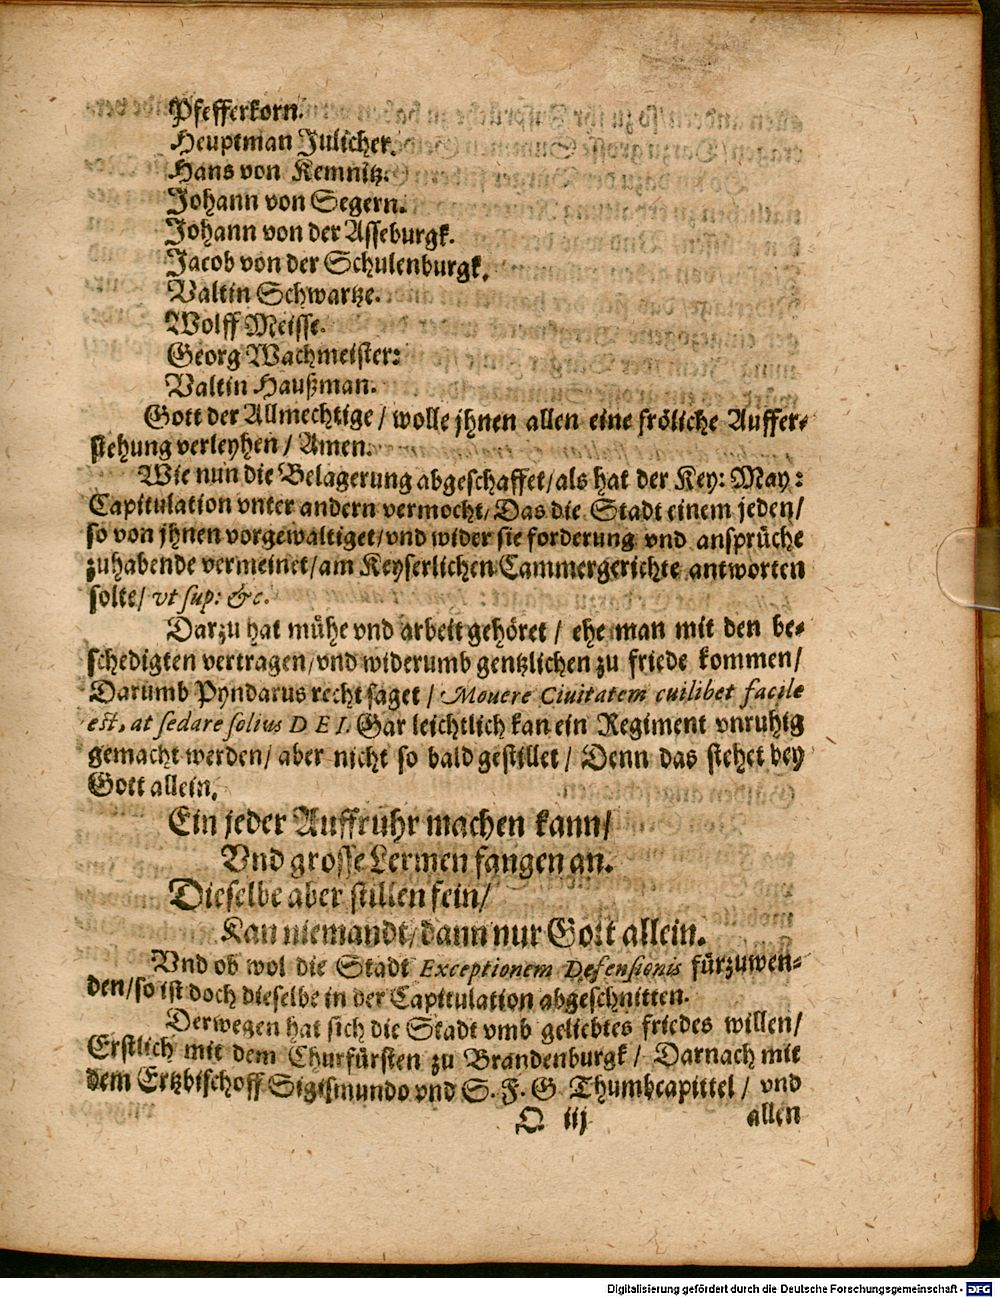 Pfefferkorn.
Heuptman Jülicher.
Hans von Kemnitz.
Johann von Segern.
Johann von der Asseburgk.
Jacob von der Schulenburgk.
Valtin Schwartze.
Wolff Meisse.
Georg Wachmeister:
Valtin Haußman.
Gott der Allmechtige / wolle jhnen allen eine fröliche Auffer-
stehung verleyhen / Amen.
Wie nun die Belagerung abgeschaffet / als hat der Key: May:
Capitulation vnter andern vermocht / Das die Stadt einem jeden /
so von jhnen vorgewaltiget / vnd wider sie forderung vnd ansprüche
zuhabende vermeinet / am Keyserlichen Cammergerichte antworten
solte / vt sup: &c.
Darzu hat mühe vnd arbeit gehöret / ehe man mit den be-
schedigten vertragen / vnd widerumb gentzlichen zu friede kommen /
Darumb Pyndarus recht saget / Mouere Ciuitatem cuilibet facile
est, at sedare solius D E I. Gar leichtlich kan ein Regiment vnruhig
gemacht werden / aber nicht so bald gestillet / Denn das stehet bey
Gott allein.
Ein jeder Auffruhr machen kann /
Vnd grosse Lermen fangen an.
Dieselbe aber stillen fein /
Kan niemandt / dann nur Gott allein.
Vnd ob wol die Stadt Exceptionem Defensionis fürzuwen-
den / so ist doch dieselbe in der Capitulation abgeschnitten.
Derwegen hat sich die Stadt vmb geliebtes friedes willen /
Erstlich mit dem Churfürsten zu Brandenburgk / Darnach mit
dem Ertzbischoff Sigismundo vnd S. F. G. Thumbcapittel / vnd
Q iij allen
Digitalisierung gefördert durch die Deutsche Forschungsgemeinschaft - DFG